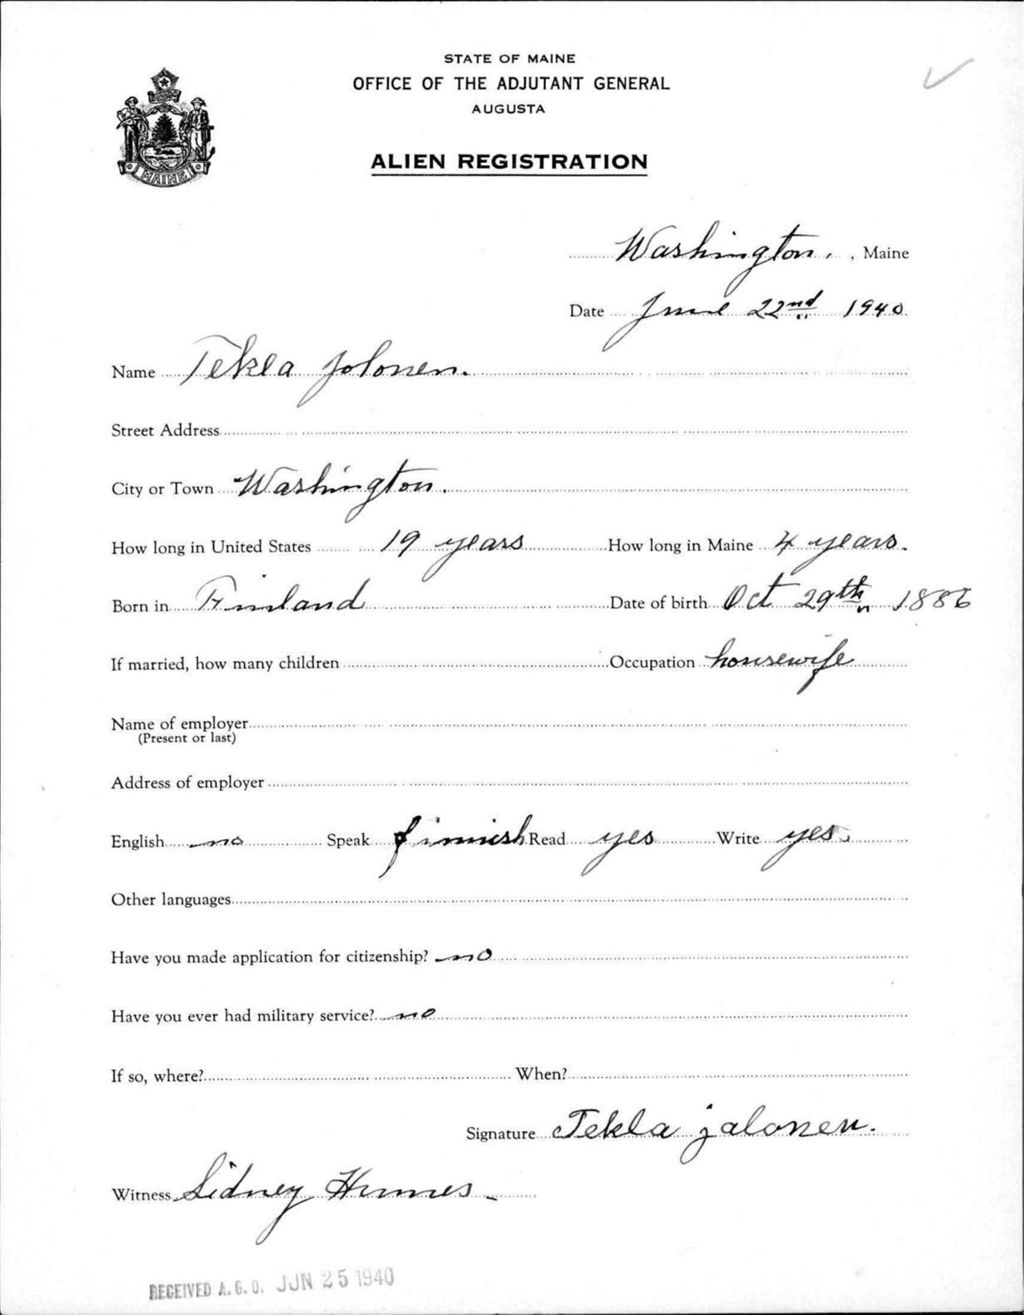 STATE OF MAINE
OFFICE OF THE ADJUTANT GENERAL
AUGUSTA
ALIEN REGISTRATION
MAINE
Washington, Maine
Date June 22nd 1940
Name Tekla Jolonen.
Street Address
City or Town Washington.
How long in United States 19 years How long in Maine 4 years.
Born in Finland Date of birth Oct 29th 1886
If married, how many children Occupation housewife
Name of employer
(Present or last)
Address of employer
English no Speak finnish Read yes Write yes.
Other languages
Have you made application for citizenship? no
Have you ever had military service? no
If so, where? When?
Signature Tekla jalonen.
Witness Sidney
RECEIVED A.G.O. JUN 25 1940